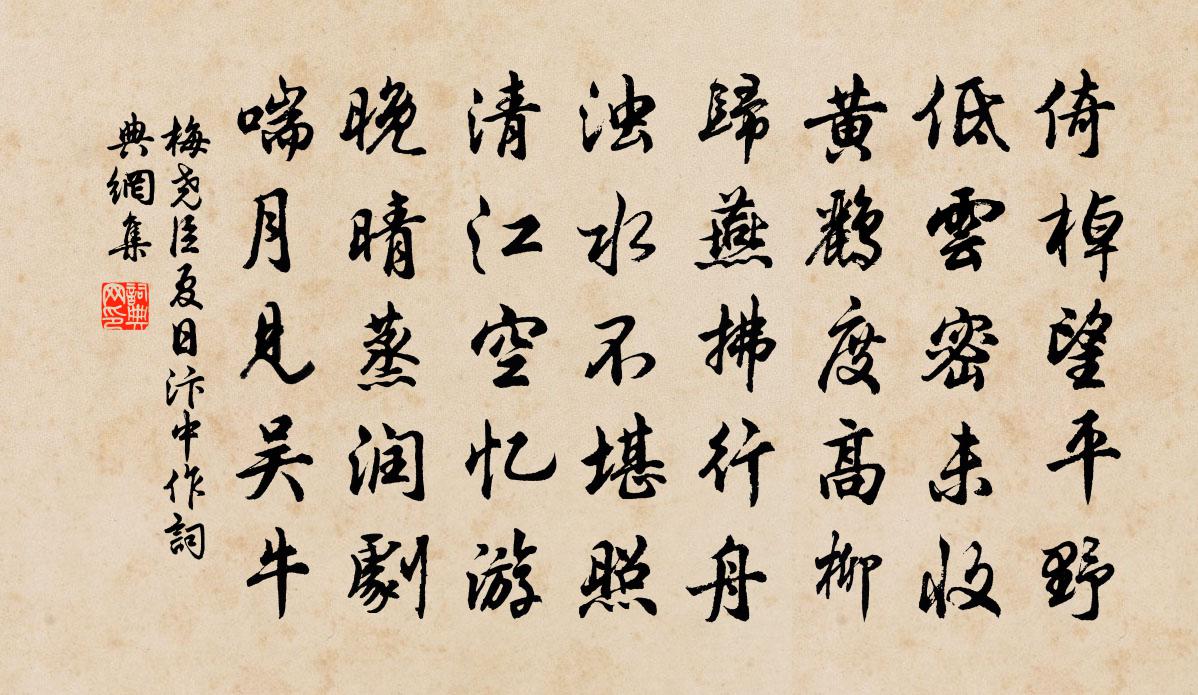 倚棹望平野
低雲密未收
黄鸝度高柳
歸燕拂行舟
浊水不堪照
清江空忆游
晚晴蒸润劇
喘月見吴牛
梅尧臣夏日汴中作詞
典網集
詞典
网印